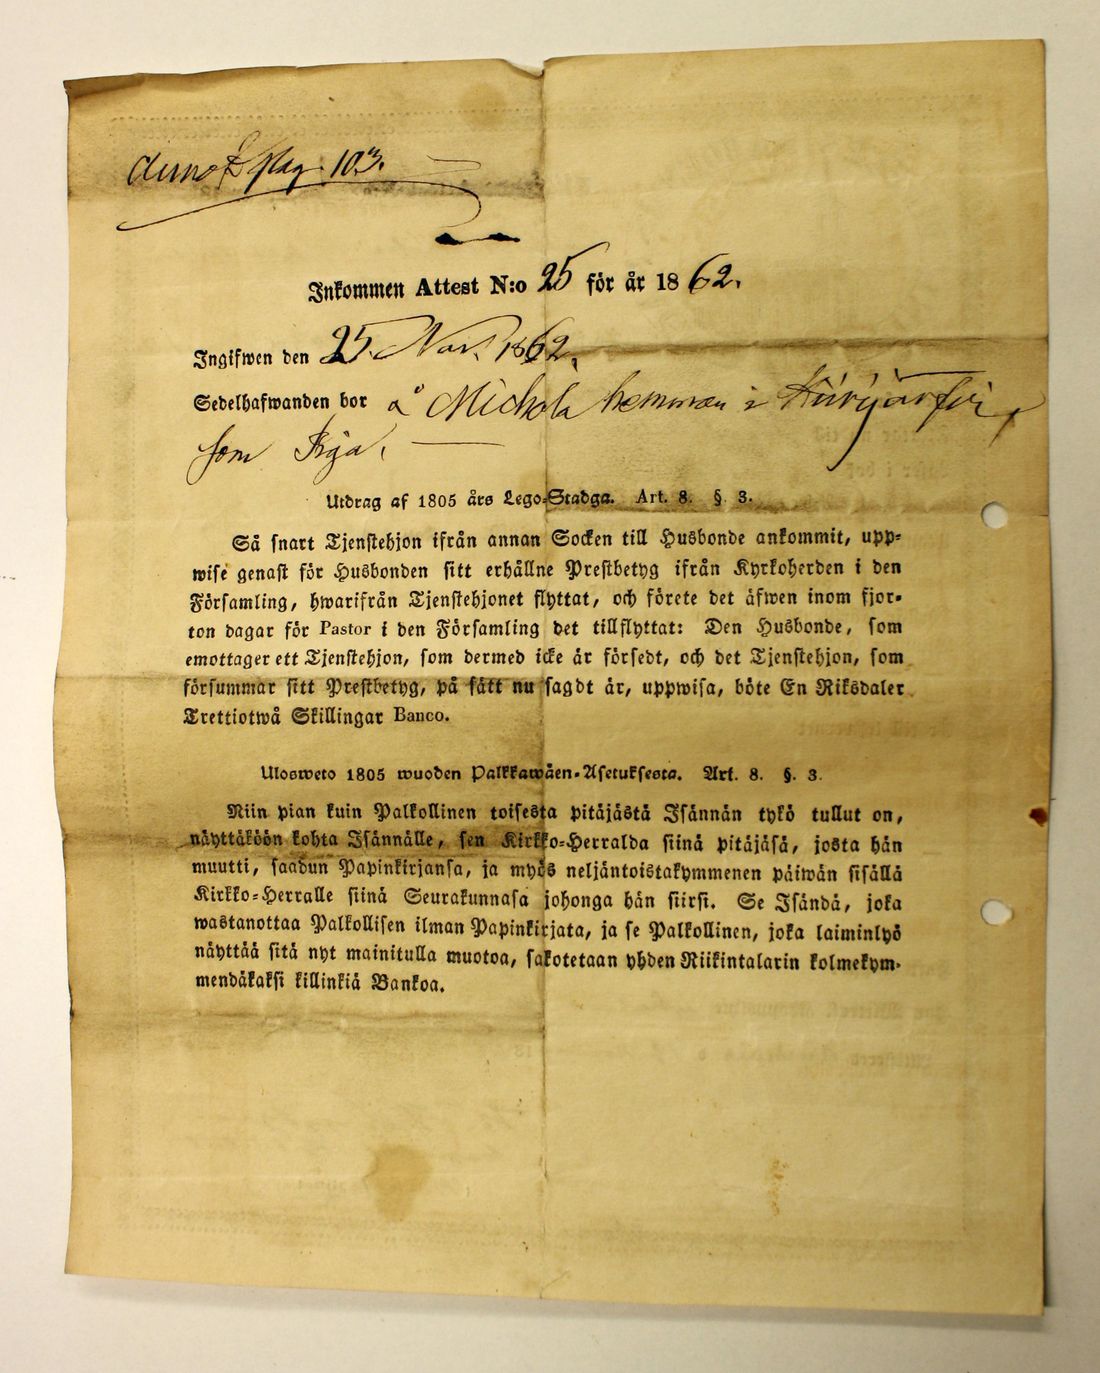 pag. 103.
Inkommen Attest N:o 25 för år 1862.
Ingifwen den 25. Nov. 1862.
Sedelhafwanden bor å Michola hemman i
som
Utdrag af 1805 års Lego-Stadga. Art. 8. §. 3.
Så snart Tjenstehjon ifrån annan Socken till Husbonde ankommit, upp-
wise genast för Husbonden sitt erhållne Prestbetyg ifrån Kyrkoherden i den
Församling, hwarifrån Tjenstehjonet flyttat, och förete det äfwen inom fjor-
ton dagar för Pastor i den Församling det tillflyttat: Den Husbonde, som
emottager ett Tjenstehjon, som dermed icke är försedt, och det Tjenstehjon, som
försummar sitt Prestbetyg, på sätt nu sagdt är, uppwisa, böte En Riksdaler
Trettiotwå Skillingar Banco.
Ulosweto 1805 wuoden Palkkawäen-Asetuksesta. Art. 8. §. 3.
Niin pian kuin Palkollinen toisesta pitäjästä Isännän tykö tullut on,
näyttäköön kohta Isännälle, sen Kirkko-Herralda siinä pitäjäsä, josta hän
muutti, saadun Papinkirjansa, ja myös neljäntoistakymmenen päiwän sisällä
Kirkko-Herralle siinä Seurakunnasa johonga hän siirsi. Se Isändä, joka
wastanottaa Palkollisen ilman Papinkirjata, ja se Palkollinen, joka laiminlyö
näyttää sitä nyt mainitulla muotoa, sakotetaan yhden Riikintalarin kolmekym-
mendäkaksi killinkiä Bankoa.